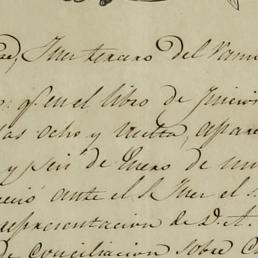 Juez tercero del
: q.e en el libro de Juicios
las ocho y vuelta, apare
y seis de Enero de mil
ció ante el S. Juez el s
representacion de D. A.
de conciliacion sobre